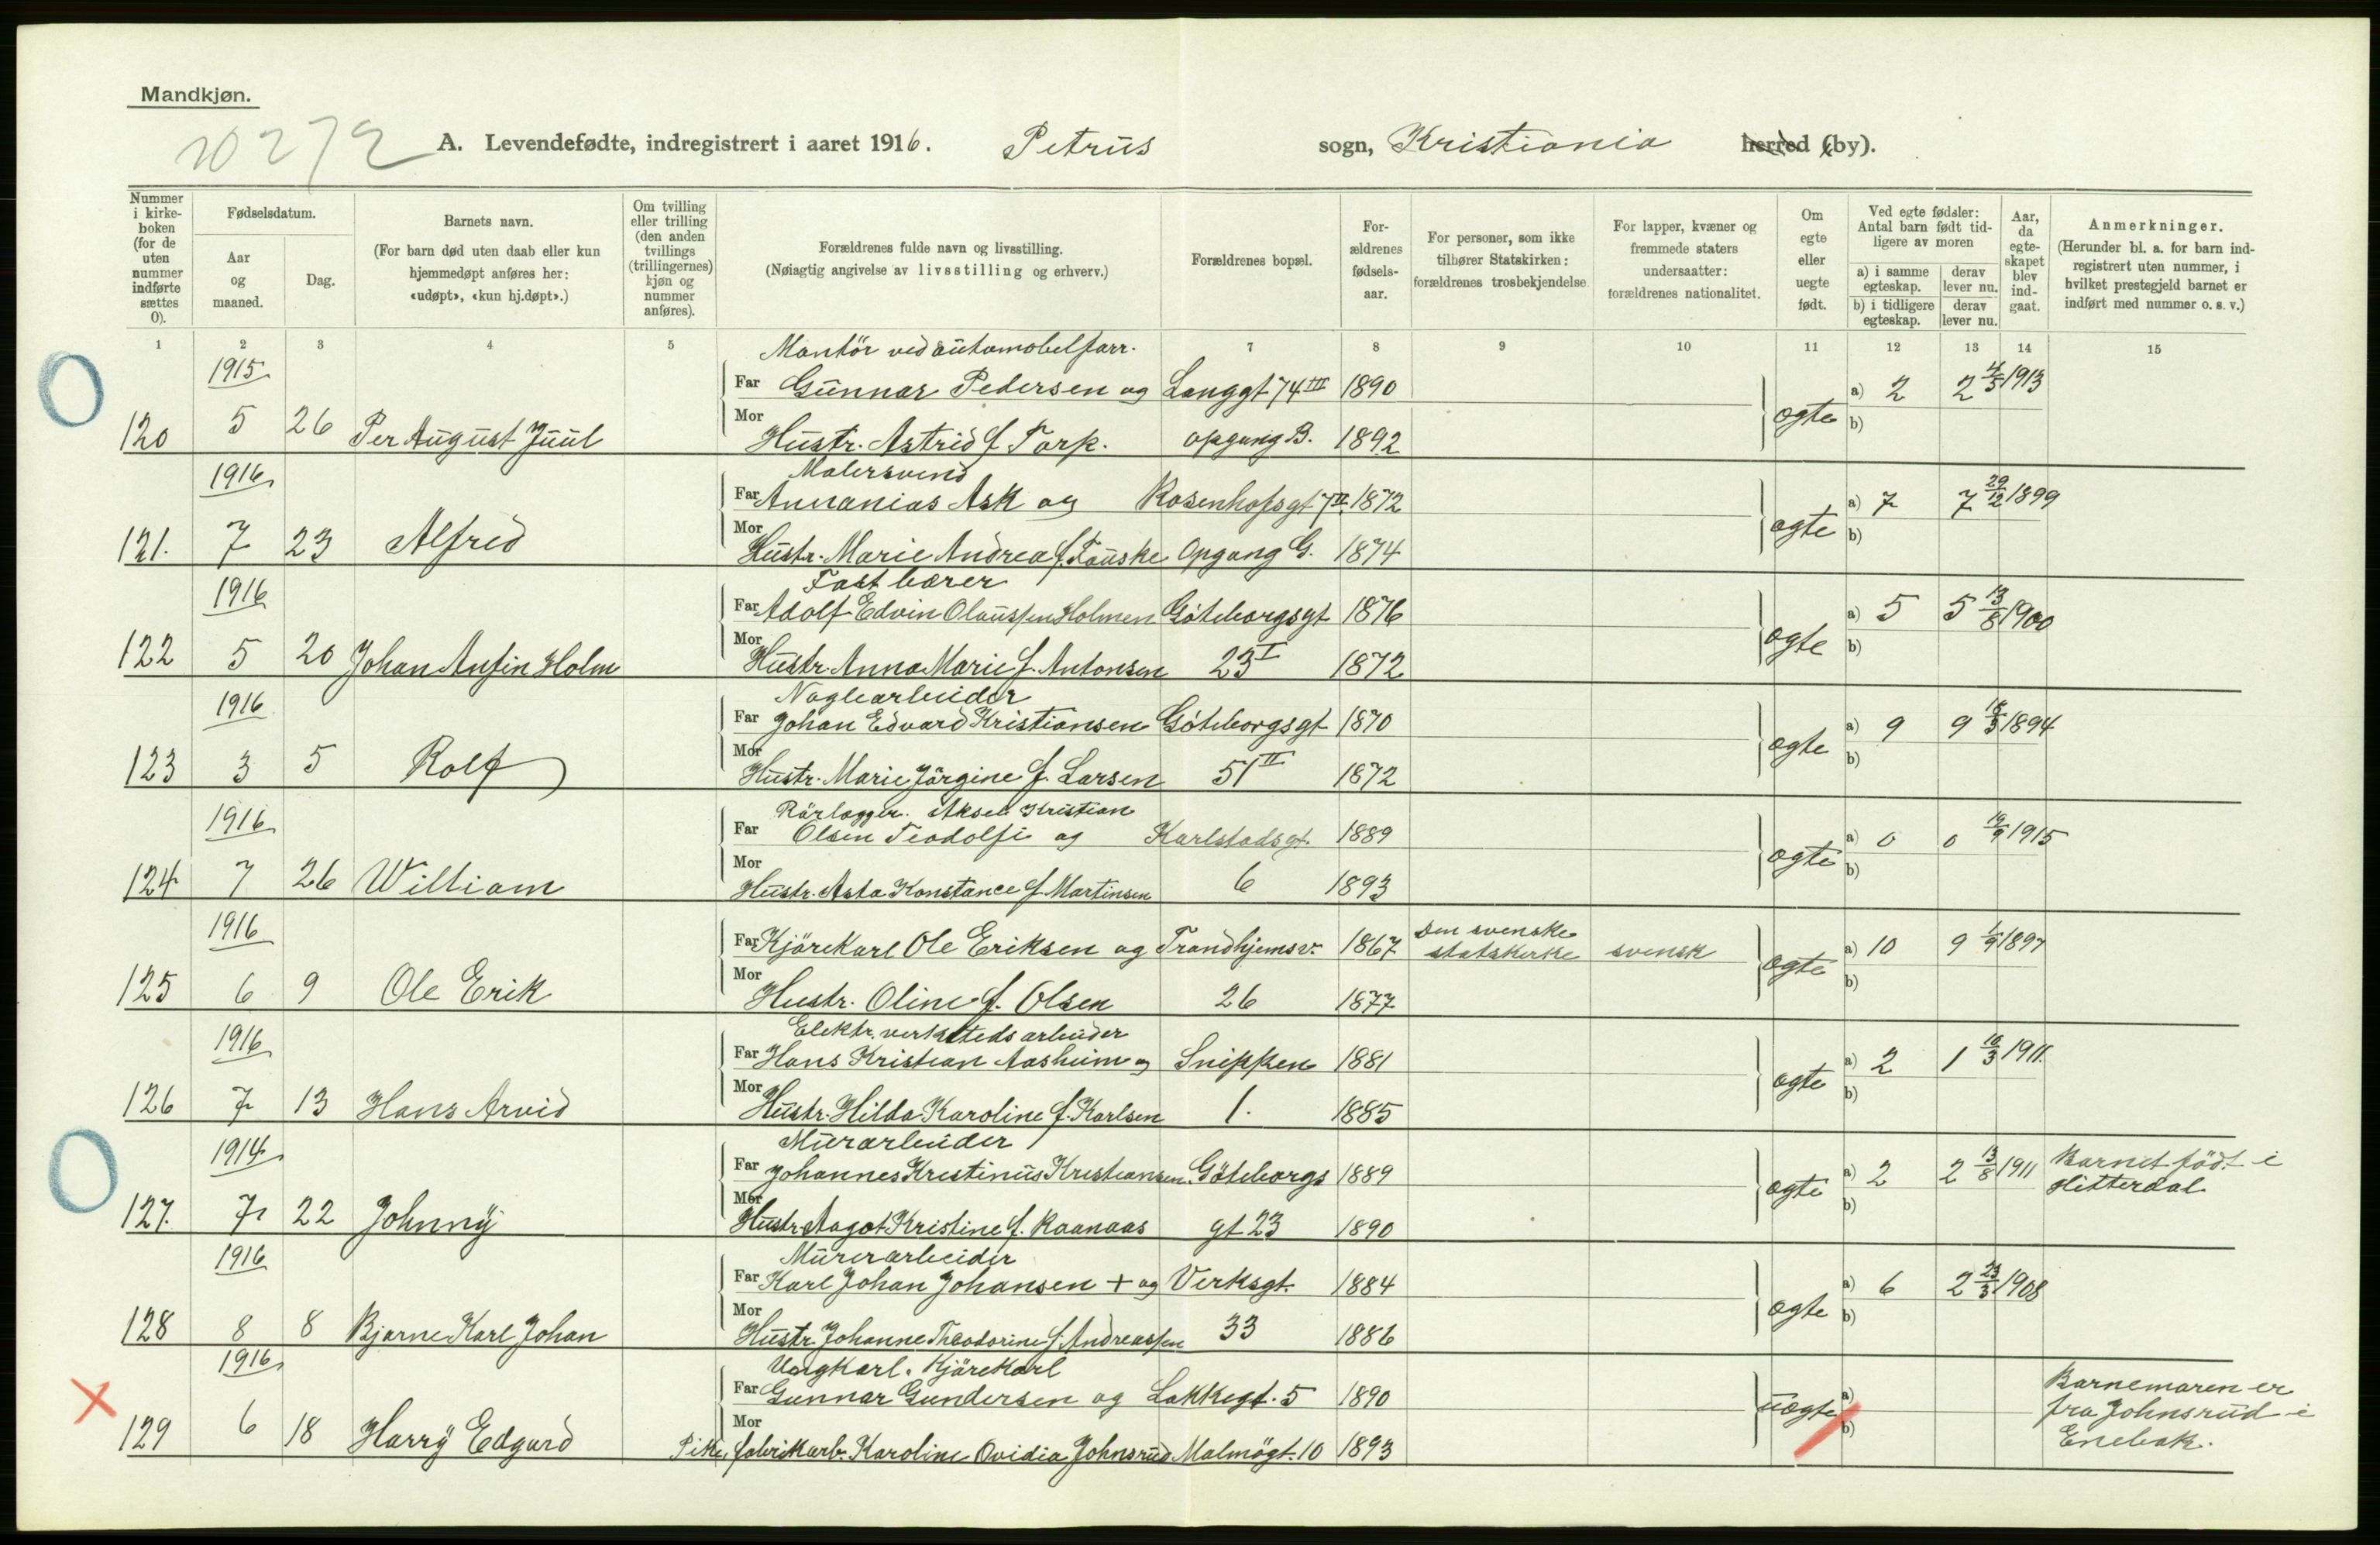 Mandkjøn.
10272
A. Levendefødte, indregistrert i aaret 1916. Petrus sogn, Kristiania herred (by).
Nummer i kirkeboken (for de uten nummer indførte sættes 0).
Fødselsdatum.
Aar og maaned.
Dag.
Barnets navn.
(For barn død uten daab eller kun hjemmedøpt anføres her: «udøpt», «kun hj.døpt».)
Om tvilling eller trilling (den anden tvillings (trillingernes) kjøn og nummer anføres).
Forældrenes fulde navn og livsstilling.
(Nøiagtig angivelse av livsstilling og erhverv.)
Forældrenes bopæl.
Forældrenes fødselsaar.
For personer, som ikke tilhører Statskirken: forældrenes trosbekjendelse
For lapper, kvæner og fremmede staters undersaatter: forældrenes nationalitet.
Om egte eller uegte født.
Ved egte fødsler: Antal barn født tidligere av moren
a) i samme egteskap.
derav lever nu.
b) i tidligere egteskap.
derav lever nu.
Aar, da egteskapet blev indgaat.
Anmerkninger.
(Herunder bl. a. for barn indregistrert uten nummer, i hvilket prestegjeld barnet er indført med nummer o. s. v.)
1 2 3 4 5 7 8 9 10 11 12 13 14 15
1915 Montör ved automobelforr.
Far Gunnar Pedersen og Langgt 74 III 1890 a) 2 2 4/5 1913
120 5 26 Per August Juul Mor Hustr. Astrid f Torp. opgang B. 1892 egte b)
1916 Malersvend
Far Annanias Ask og Rosenhofsgt 7 II. 1872 a) 7 7 29/12 1899
121. 7 23 Alfred Mor Hustr. Marie Andrea f. Fauske Opgang G. 1874 egte b)
1916 Fast bærer
Far Adolf Edvin Olaussen Holmen Göteborgsgt 1876 a) 5 5 13/8 1900
122 5 20 Johan Anfin Holm Mor Hustr. Anna Marie f. Antonsen 23 I 1872 egte b)
1916 Naglearbeider
Far Johan Edvard Kristiansen Göteborgsgt 1870 a) 9 9 18/3 1894
123 3 5 Rolf Mor Hustr. Marie Jörgine f. Larsen 51 II 1872 egte b)
1916 Rörlægger. Aksel Kristian
Far Olsen Teodolfi og Karlstadsgt. 1889 a) 0 0 19/9 1915
124 7 26 William Mor Hustr. Asta Konstance f Martinsen 6 1893 egte b)
1916 Far Kjörekarl Ole Eriksen og Trondhjemsv. 1867 Den svenske statskirke svensk a) 10 9 1/9 1897
125 6 9 Ole Erik Mor Hustr. Oline f. Olsen 26 1877 egte b)
1916 Elektr. verkstedsarbeider
Far Hans Kristian Aasheim og Snippen 1881 a) 2 1 18/3 1911.
126 7 13 Hans Arvid Mor Hustr. Hilda Karoline f. Karlsen 1. 1885 egte b)
1914 Murarbeider
Far Johannes Kristinus Kristiansen. Göteborgs 1889 a) 2 2 13/8 1911 Barnet födt i Hitterdal
127. 7 22 Johnny Mor Hustr. Aagot Kristine f. Raanaas gt 23 1890 egte b)
1916 Murerarbeider
Far Karl Johan Johansen + og Verksgt. 1884 a) 6 2 23/3 1908
128 8 8 Bjarne Karl Johan Mor Hustr Johanne Theodorine f. Andreassen 33 1886 egte b)
1916 Ungkarl. Kjörekarl
Far Gunnar Gundersen og Lakkegt. 5 1890 a) Barnemoren er fra Johnsrud i Enebak.
129 6 18 Harry Edgard Mor Pike, fabrikarb. Karoline Ovidia Johnsrud Malmögt. 10 1893 uegte b)